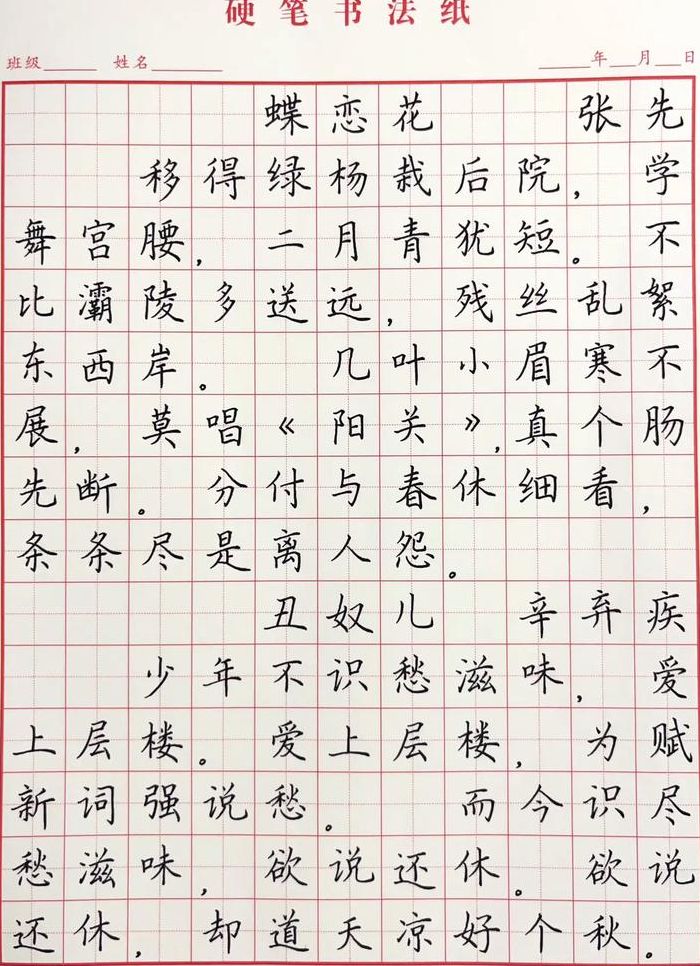 硬笔书法纸
班级 姓名 年 月 日
蝶恋花 张先
移得绿杨栽后院，学
舞宫腰，二月青犹短。不
比灞陵多送远，残丝乱絮
东西岸。 几叶小眉寒不
展，莫唱《阳关》，真个肠
先断。分付与春休细看，
条条尽是离人怨。
丑奴儿 辛弃疾
少年不识愁滋味，爱
上层楼。爱上层楼，为赋
新词强说愁。 而今识尽
愁滋味，欲说还休。欲说
还休，却道天凉好个秋。